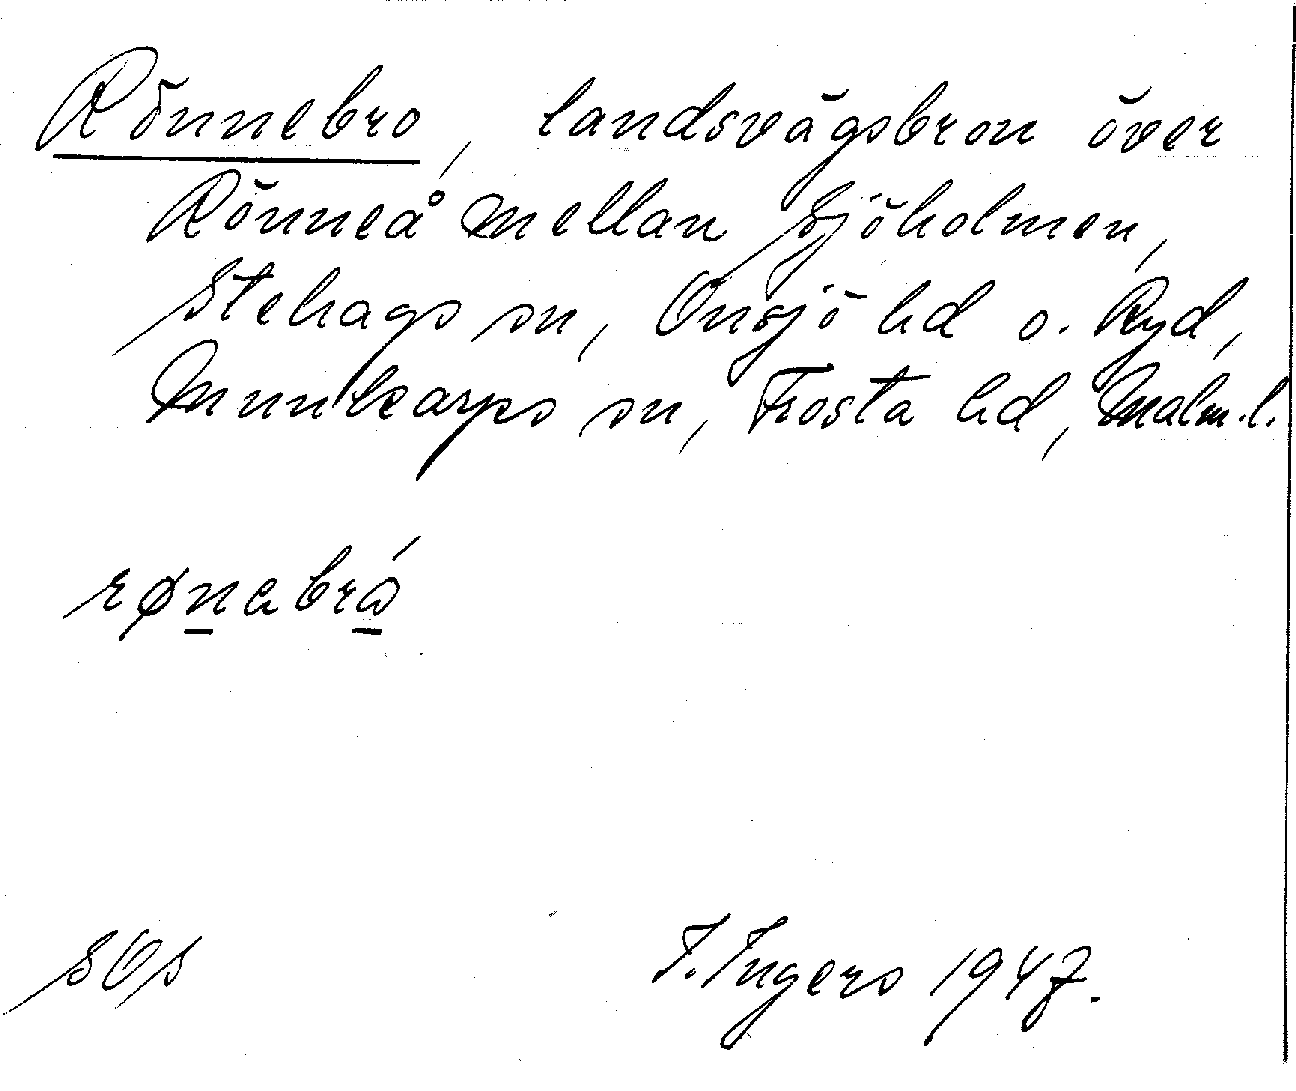 Rönnebro, landsvägsbron över
Rönneå mellan Sjöholmen,
Stehags sn, Onsjö hd o. Ryd,
Munkarps sn, Frosta hd, Malm.l.
rønabrǻ
SOS
I. Ingers 1947.